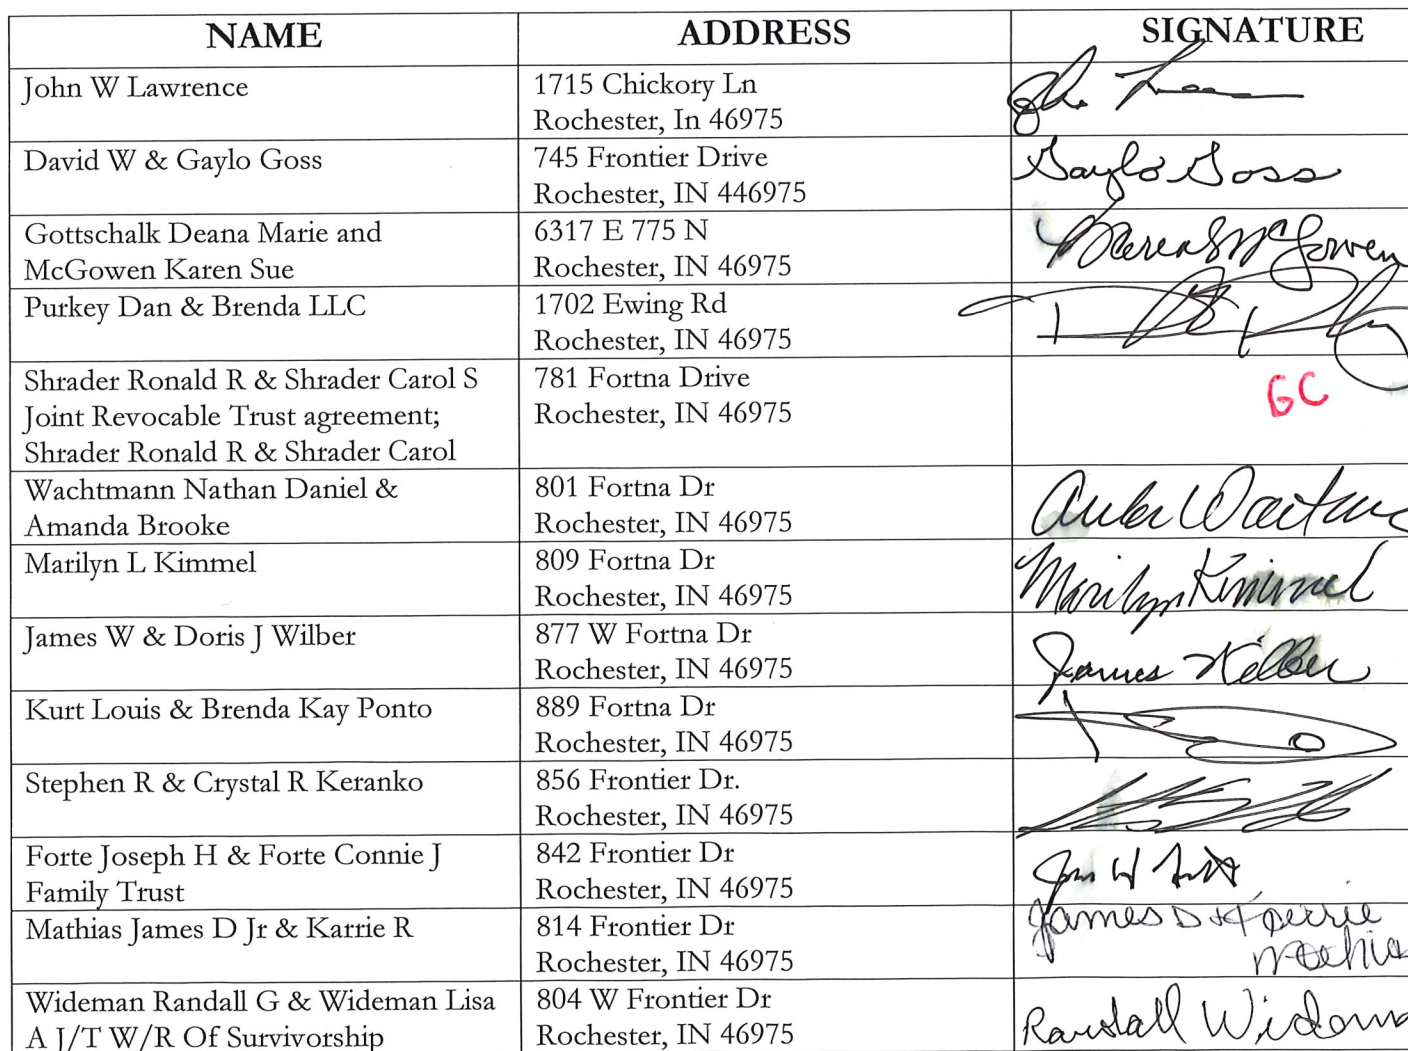 NAME ADDRESS SIGNATURE
John W Lawrence
1715 Chickory Ln
Rochester, In 46975
David W & Gaylo Goss
745 Frontier Drive
Rochester, IN 446975
Gaylo Goss
Gottschalk Deana Marie and
McGowen Karen Sue
6317 E 775 N
Rochester, IN 46975
Karen S McGowen
Purkey Dan & Brenda LLC
1702 Ewing Rd
Rochester, IN 46975
Shrader Ronald R & Shrader Carol S
Joint Revocable Trust agreement;
Shrader Ronald R & Shrader Carol
781 Fortna Drive
Rochester, IN 46975
GC
Wachtmann Nathan Daniel &
Amanda Brooke
801 Fortna Dr
Rochester, IN 46975
Marilyn L Kimmel
809 Fortna Dr
Rochester, IN 46975
Marilyn Kimmel
James W & Doris J Wilber
877 W Fortna Dr
Rochester, IN 46975
James Wilber
Kurt Louis & Brenda Kay Ponto
889 Fortna Dr
Rochester, IN 46975
Stephen R & Crystal R Keranko
856 Frontier Dr.
Rochester, IN 46975
Forte Joseph H & Forte Connie J
Family Trust
842 Frontier Dr
Rochester, IN 46975
Mathias James D Jr & Karrie R
814 Frontier Dr
Rochester, IN 46975
James D &
Wideman Randall G & Wideman Lisa
A J/T W/R Of Survivorship
804 W Frontier Dr
Rochester, IN 46975
Randall